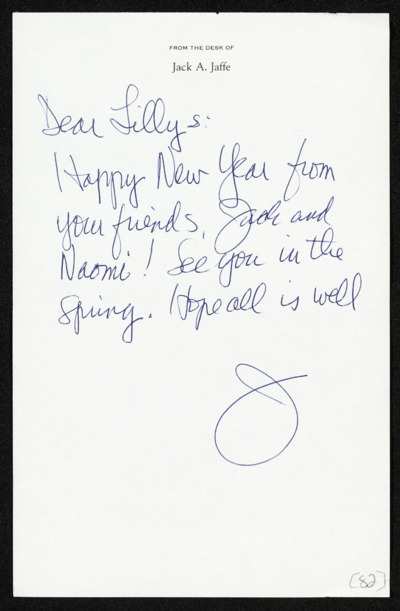 FROM THE DESK OF
Jack A. Jaffe
Dear Lillys:
Happy New Year from
your friends, Jack and
Naomi! See you in the
spring. Hope all is well
J
[82]